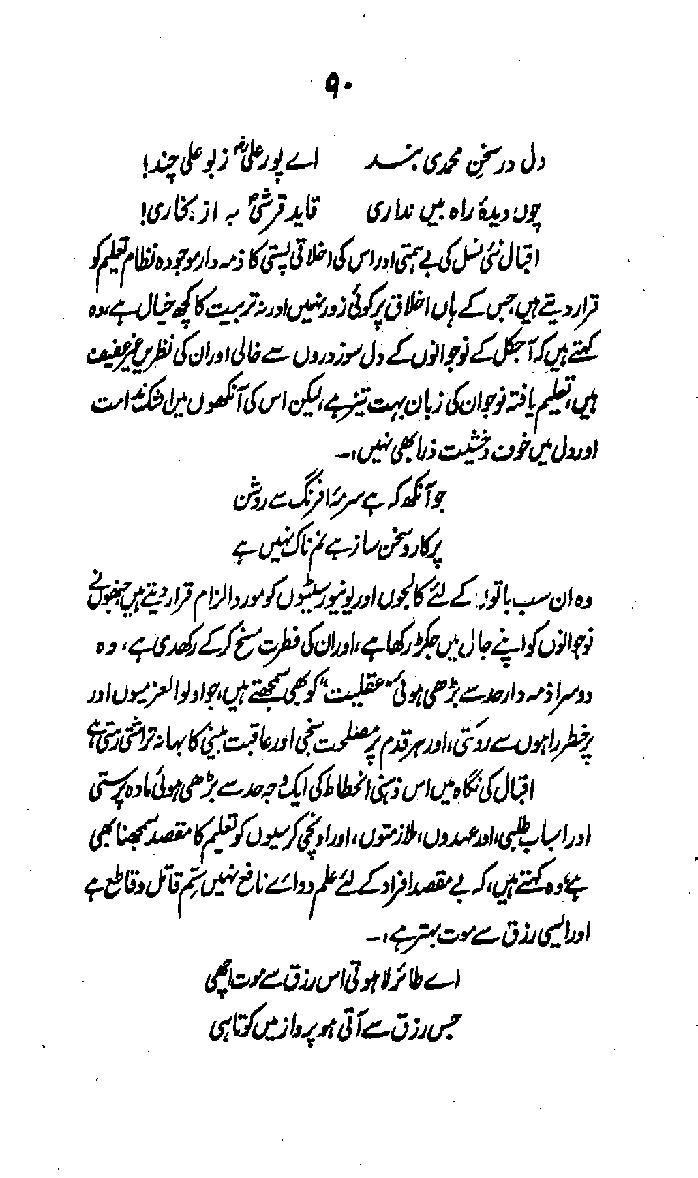 ۹۰
دل در سخن محمدی بند اے پور علیؓ ز بو علی چند!
چوں دیدۂ راہ بیں نداری قاید قرشیؐ بہ از بخاری!
اقبال نئی نسل کی بے ہمتی اور اس کی اخلاقی پستی کا ذمہ دار موجودہ نظام تعلیم کو
قرار دیتے ہیں، جس کے ہاں اخلاق پر کوئی زور نہیں اور نہ تربیت کا کچھ خیال ہے، وہ
کہتے ہیں کہ آجکل کے نوجوانوں کے دل سوز دروں سے خالی اور ان کی نظریں غیر عفیف
ہیں، تعلیم یافتہ نوجوان کی زبان بہت تیز ہے، لیکن اس کی آنکھوں میں اشک ندامت
اور دل میں خوف و خشیت ذرا بھی نہیں،۔
جو آنکھ کہ ہے سرمۂ افرنگ سے روشن
پرکار و سخن ساز ہے نم ناک نہیں ہے
وہ ان سب باتوں کے لئے کالجوں اور یونیورسٹیوں کو مورد الزام قرار دیتے ہیں جنھوں نے
نوجوانوں کو اپنے جال میں جکڑ رکھا ہے، اور ان کی فطرت مسخ کر کے رکھدی ہے، وہ
دوسرا ذمہ دار حد سے بڑھی ہوئی "عقلیت" کو بھی سمجھتے ہیں، جو اولوالعزمیوں اور
پر خطر راہوں سے روکتی، اور ہر قدم پر مصلحت سنجی اور عاقبت بینی کا بہانہ تراشتی رہتی ہے
اقبال کی نگاہ میں اس ذہنی انحطاط کی ایک وجہ حد سے بڑھی ہوئی مادہ پرستی
اور اسباب طلبی، اور عہدوں، ملازمتوں، اور اونچی کرسیوں کو تعلیم کا مقصد سمجھنا بھی
ہے، وہ کہتے ہیں، کہ بے مقصد افراد کے لئے علم دوائے نافع نہیں سم قاتل و قاطع ہے
اور ایسی رزق سے موت بہتر ہے،۔
اے طائر لاہوتی اس رزق سے موت اچھی
جس رزق سے آتی ہو پرواز میں کوتاہی